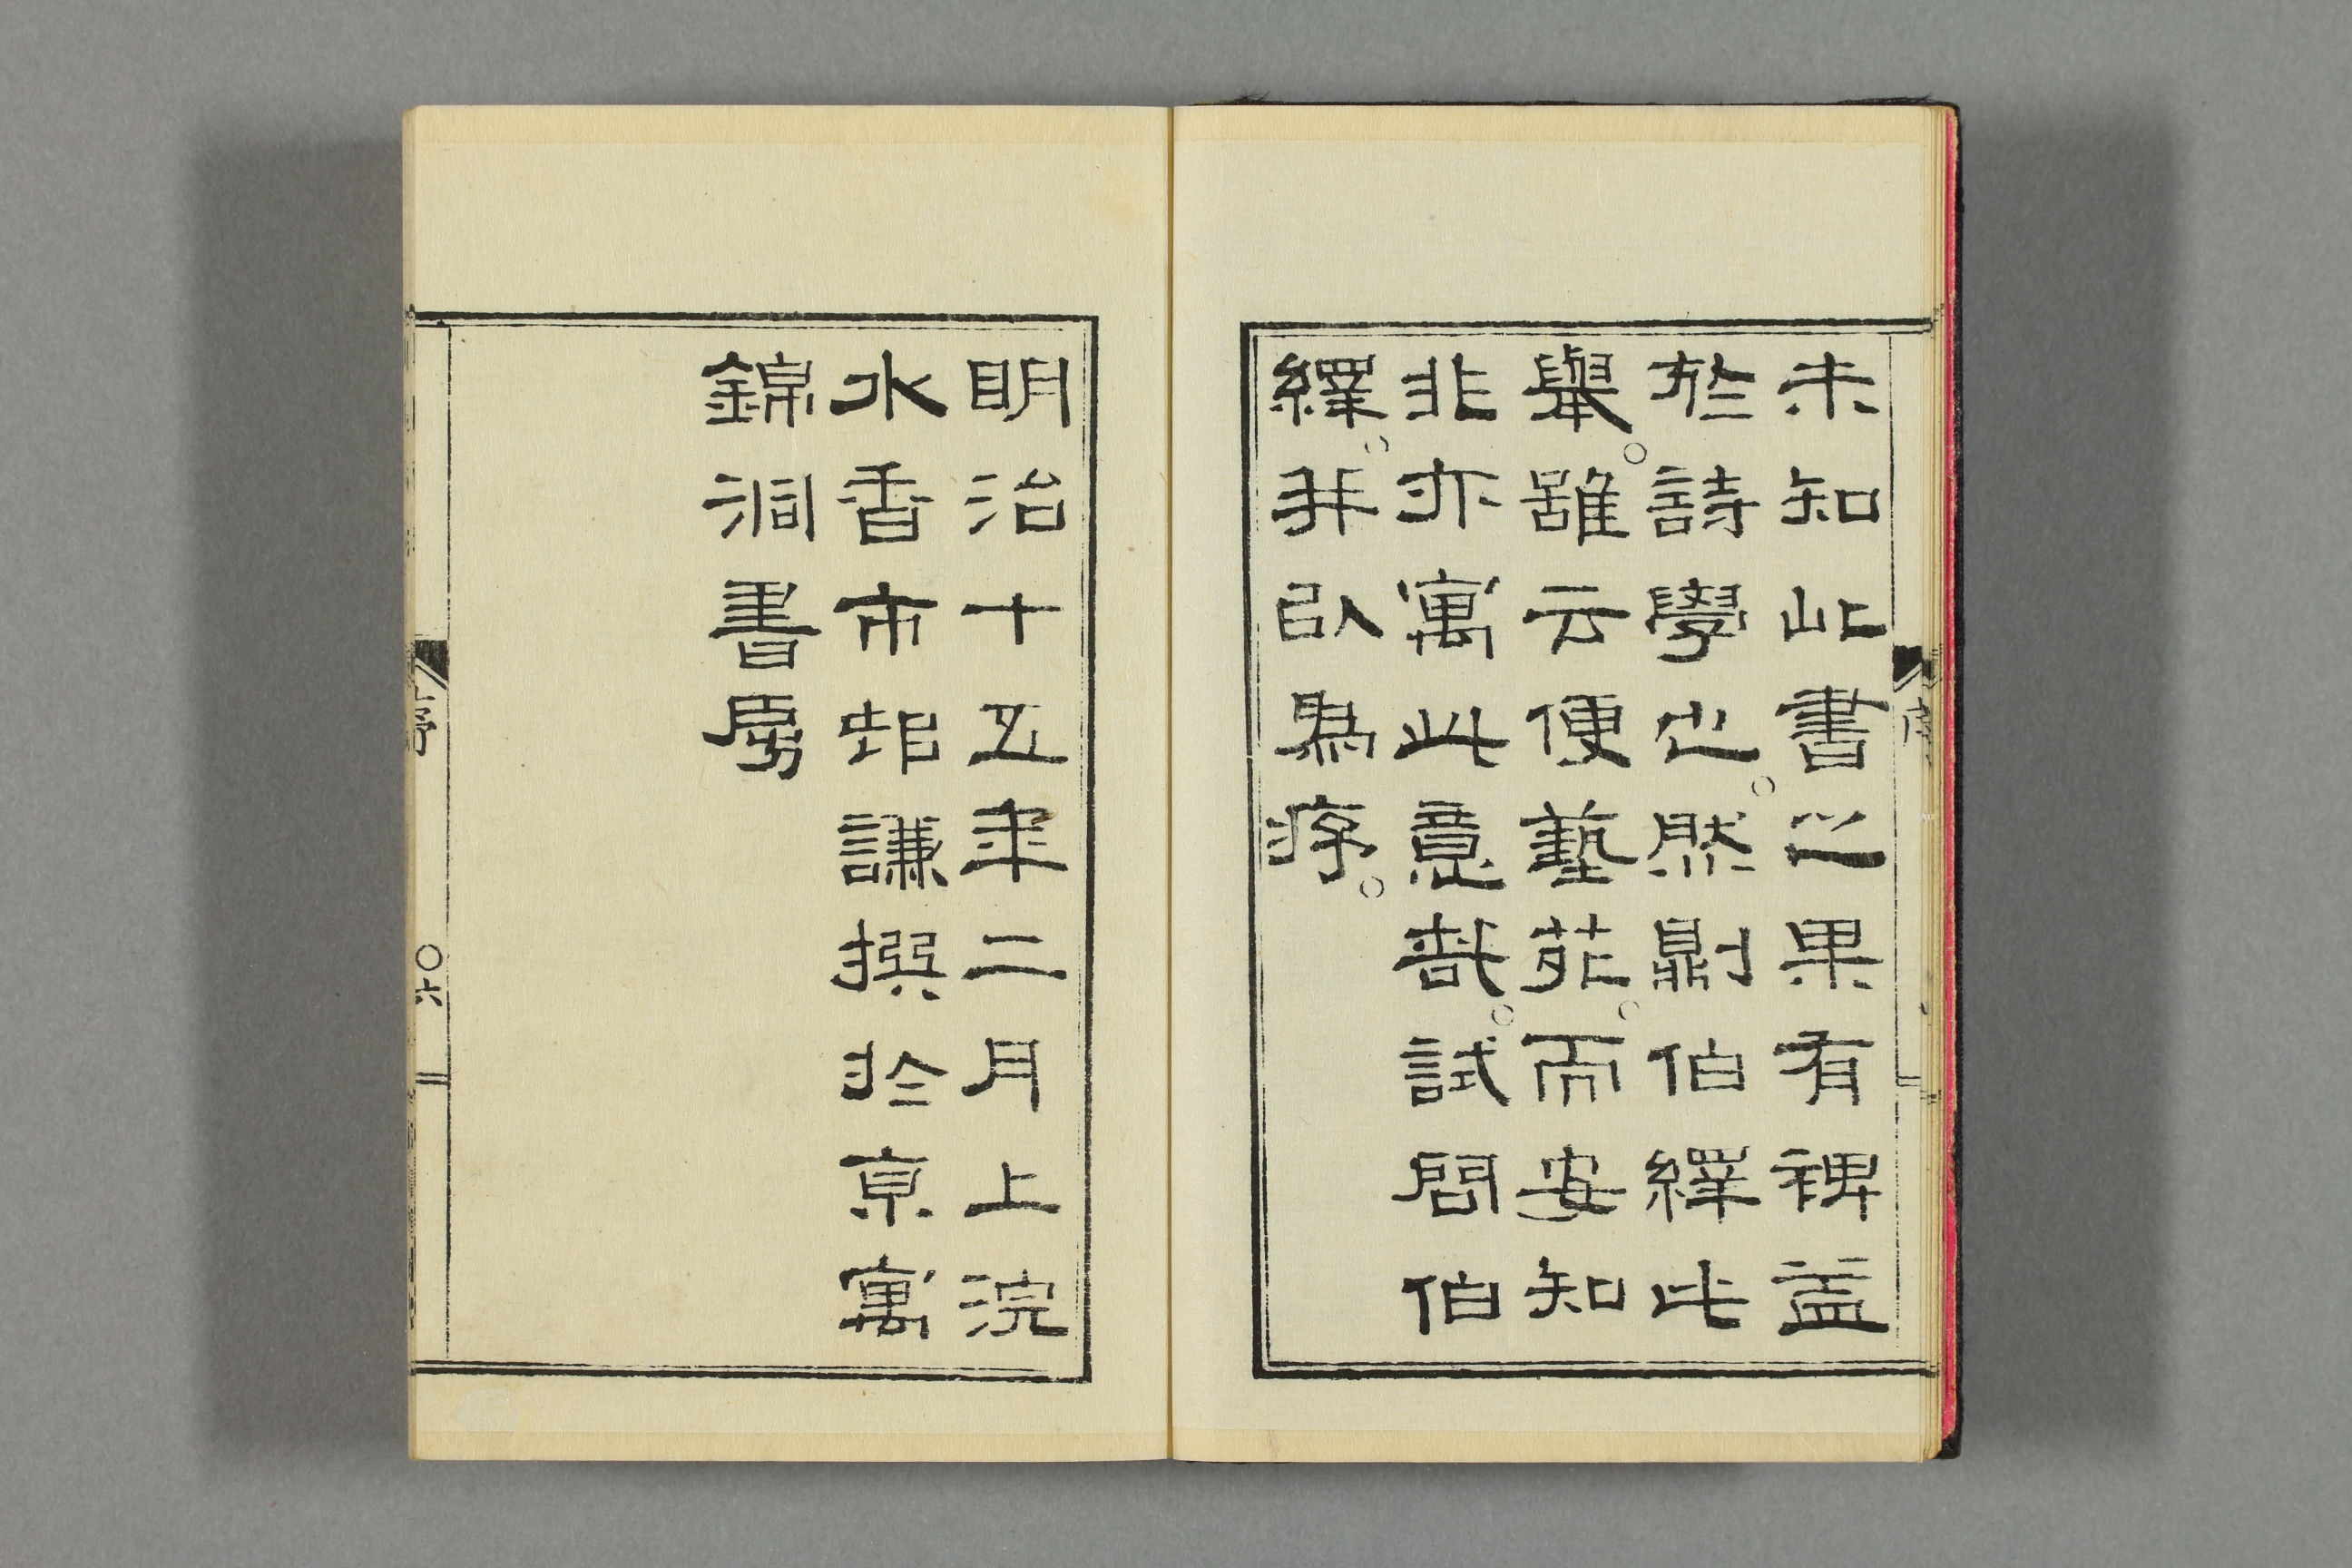 未知此書之果有裨益
於詩學也○然則伯繹此
舉○雖云便藝苑○而安知
非亦寓此意哉○試問伯
繹○并以為序○
明治十五年二月上浣
水香市邨謙撰於京寓
錦洞書房
序
○六